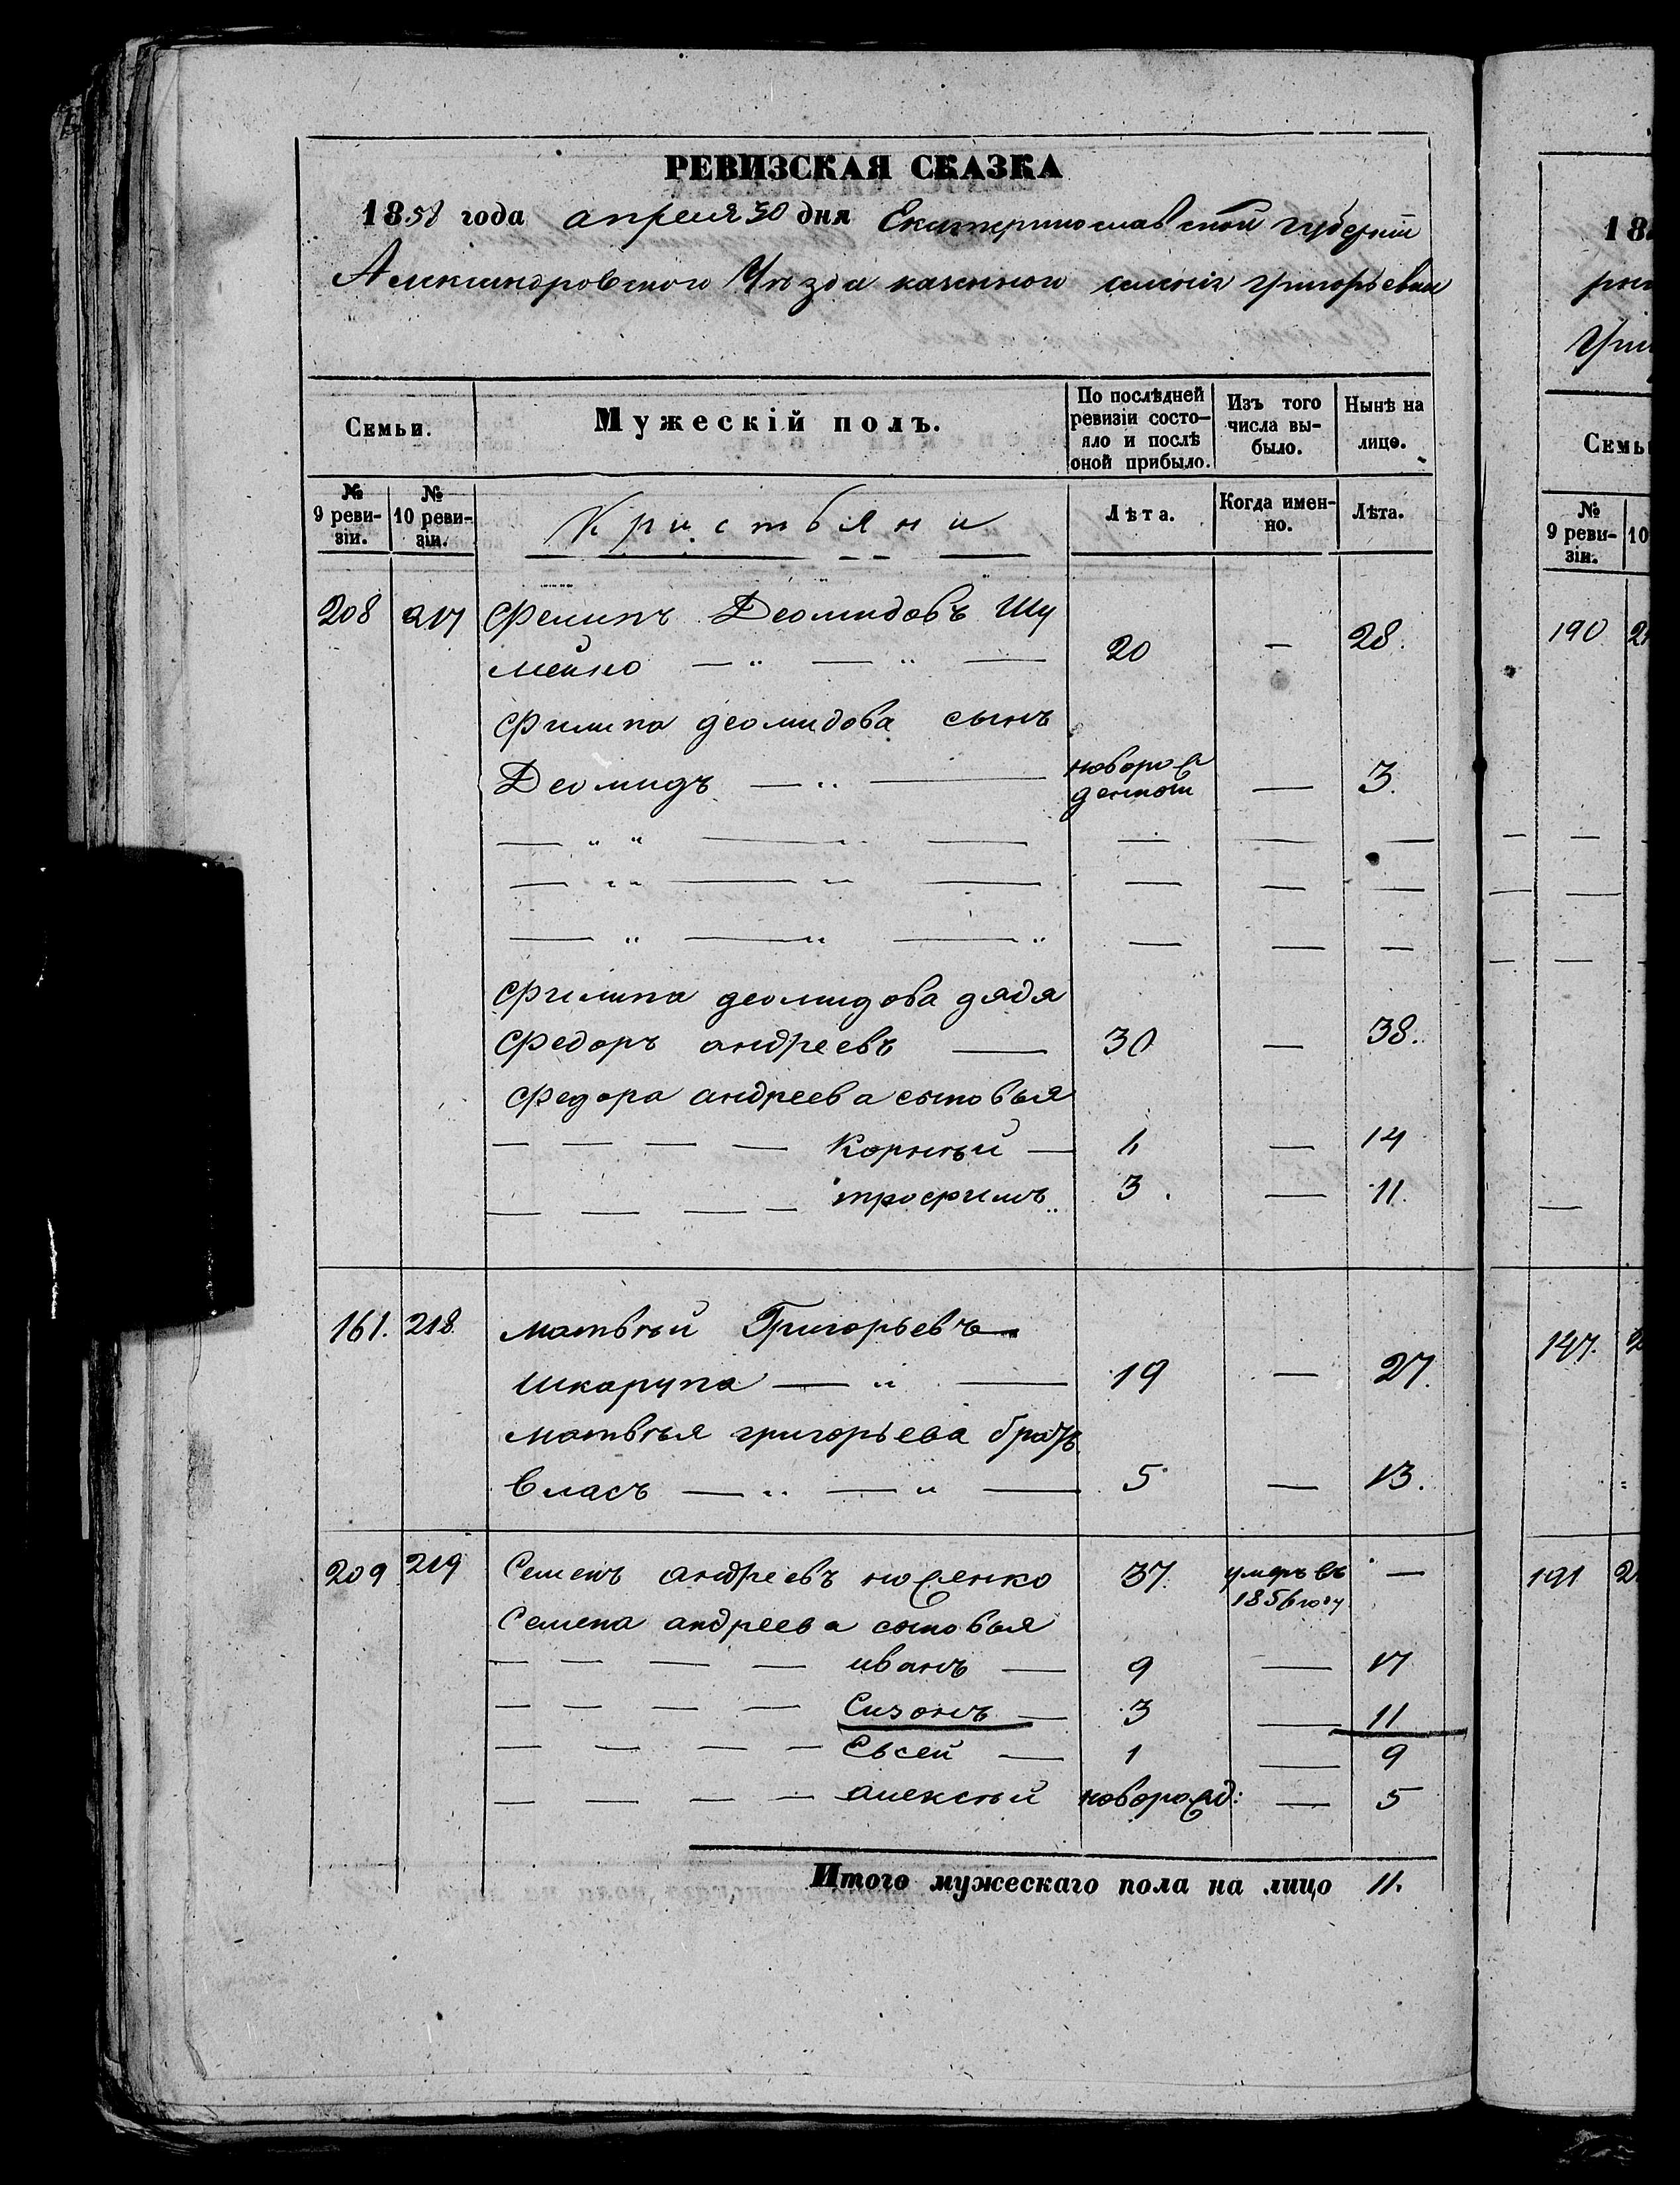 РЕВИЗСКАЯ СКАЗКА
1858 года апреля 30 дня Екатеринославской губерніи
Александровского Уѣзда казенного селенія григорьевки
Семьи.
Мужескій полъ.
По послѣдней ревизіи состояло и послѣ оной прибыло.
Изъ того числа выбыло.
Нынѣ на лицо.
№ 9 ревизіи.
№ 10 ревизіи.
Кристьяни
Лѣта.
Когда именно.
Лѣта.
208 217 Фелипъ Деомидовъ Шу
мейко — " — " — 20 — 28.
Филипа деомидова сынъ
Деомидъ — " — новорож
денной — 3.
Филипа деомидова дядя
Федоръ андреевъ — 30 — 38.
Федора андреева сыновья
— — — — Корнѣй — 6 — 14
— — — — трофимъ 3. — 11.
161. 218. матвѣй Григорьевъ —
шкарупа — " — 19 — 27.
матвѣя григорьева братъ
власъ — " — " — 5 — 13.
209 219 Семенъ андреевъ 37. умеръ въ —
1856 году
Семена андреева сыновья
— — — — иванъ — 9 — 17
— — — — Сизонъ — 3 — 11
— — — — Евсей — 1 — 9
— — — — алексѣй новорожд: — 5
Итого мужескаго пола на лицо 11.
18
Семь
№ 9 ревизіи.
10
190
147.
191